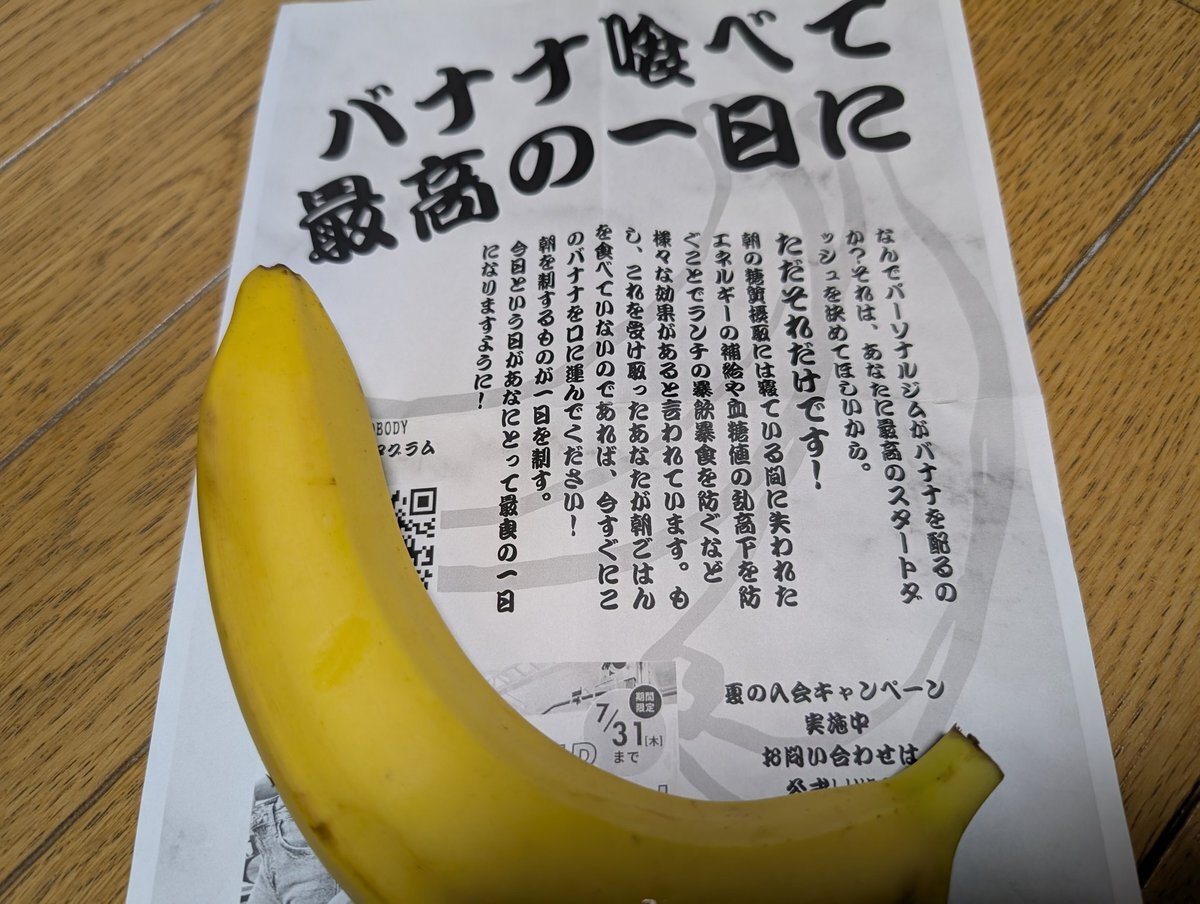 バナナ喰べて
最高の一日に
なんでパーソナルジムがバナナを配るの
か？それは、あなたに最高のスタートダ
ッシュを決めてほしいから。
ただそれだけです！
朝の糖質摂取には寝ている間に失われた
エネルギーの補給や血糖値の乱高下を防
ぐことでランチの暴飲暴食を防ぐなど
様々な効果があると言われています。も
し、これを受け取ったあなたが朝ごはん
を食べていないのであれば、今すぐにこ
のバナナを口に運んでください！
朝を制するものが一日を制す。
今日という日があなにとって最食の一日
になりますように！
OBODY
タグラム
期間
限定
7/31[木]
まで
D
夏の入会キャンペーン
実施中
お問い合わせは